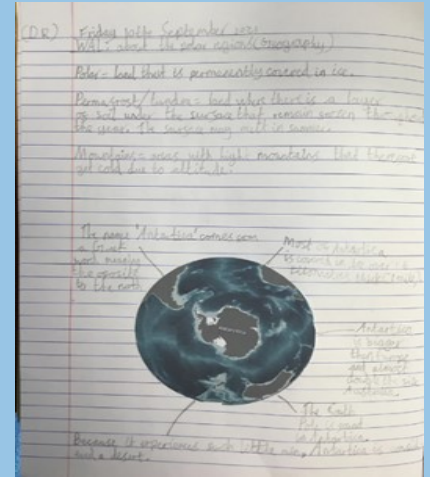 (D.R) Friday 10th September 2021
WAL: about the polar regions (Geography)
Polar = land that is permanently covered in ice.
Permafrost/tundra = land where there is a layer
of soil under the surface that remain frozen
the year. The surface may melt in summer.
Mountains = areas with hight mountains that
get cold due to altitude.
The name 'Antartica' comes from
a Greek
word meaning
the oposite
to the north
Most of Antartica
is covered in ice over
kilometres thick (1 mile)
ANTARCTICA
Antartica
is bigger
than Europe
and almost
double the size
Australia.
The South
Pole is found
in Antartica.
Because it experiences such little rain, Antartica is
a desert.